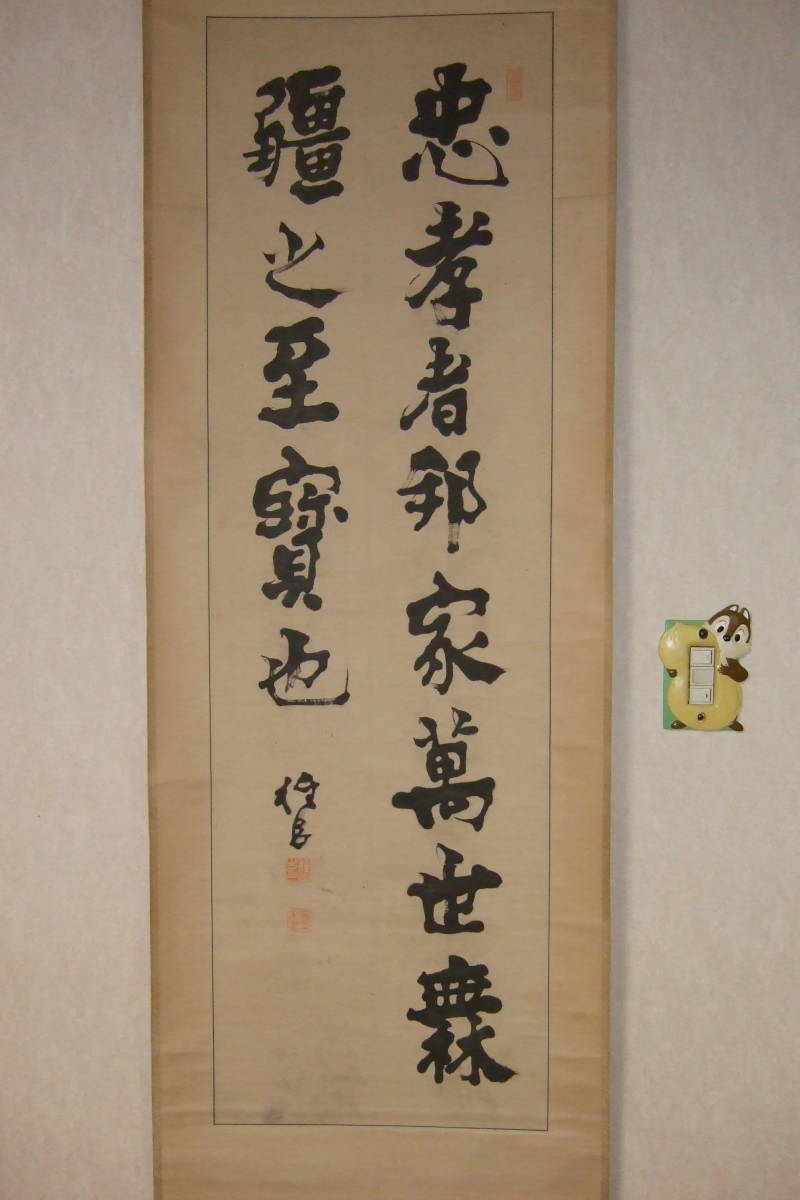 忠孝者邦家萬世無
疆之至寶也